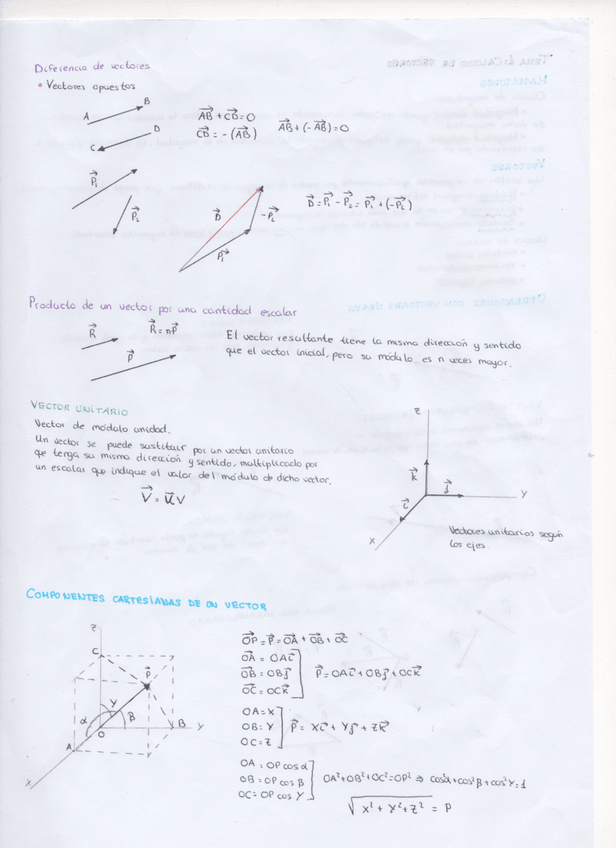 Diferencia de vectores
• Vectores opuestos
A B
C D
AB + CD = 0
CD = - (AB)
AB + (-AB) = 0
P₁
P₂
D
-P₂
P₁
D = P₁ - P₂ = P₁ + (-P₂)
Producto de un vector por una cantidad escalar
R
R = nP
P
El vector resultante tiene la misma dirección y sentido
que el vector inicial, pero su módulo es n veces mayor.
VECTOR UNITARIO
Vector de módulo unidad.
Un vector se puede sustituir por un vector unitario
qe tenga su misma dirección y sentido, multiplicado por
un escalar que indique el valor del módulo de dicho vector.
V = u V
Z
K
J
i
Y
X
Vectores unitarios según
los ejes.
COMPONENTES CARTESIANAS DE UN VECTOR
Z
C
P
γ
α
β
A
O
B
Y
X
OP = P = OA + OB + OC
OA = OA i
OB = OB j
OC = OC K
P = OA i + OB j + OC K
OA = X
OB = Y
OC = Z
P = X i + Y j + Z K
OA = OP cos α
OB = OP cos β
OC = OP cos γ
OA² + OB² + OC² = OP² ⇒ cos²α + cos²β + cos²γ = 1
√X² + Y² + Z² = P